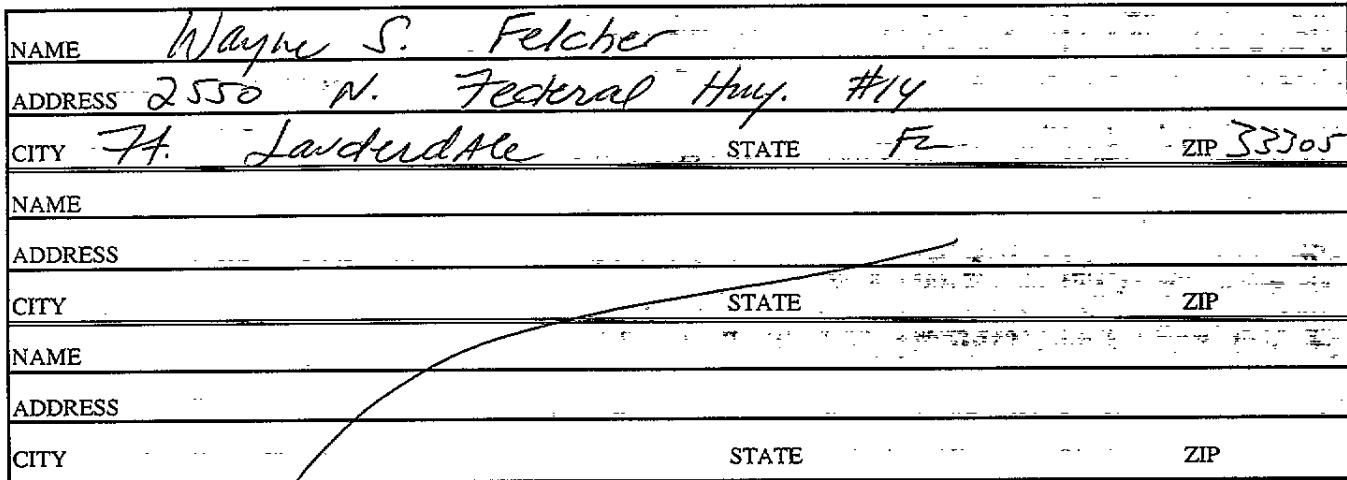 NAME Wayne S. Felcher
ADDRESS 2550 N. Federal Hwy. #14
CITY Ft. Lauderdale STATE FL ZIP 33305
NAME
ADDRESS
CITY STATE ZIP
NAME
ADDRESS
CITY STATE ZIP